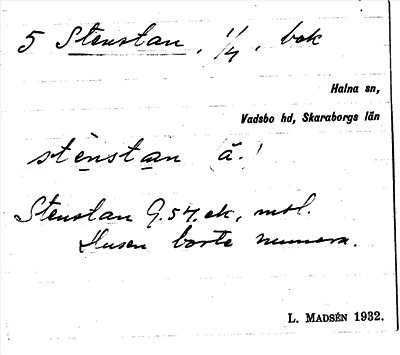 5 Stenstan, 1/4, bok
Halna sn,
Vadsbo hd, Skaraborgs län
stènstan ā.!
Stenstan G. 57. ek, mtl.
Husen borte numera.
L. MADSÉN 1932.